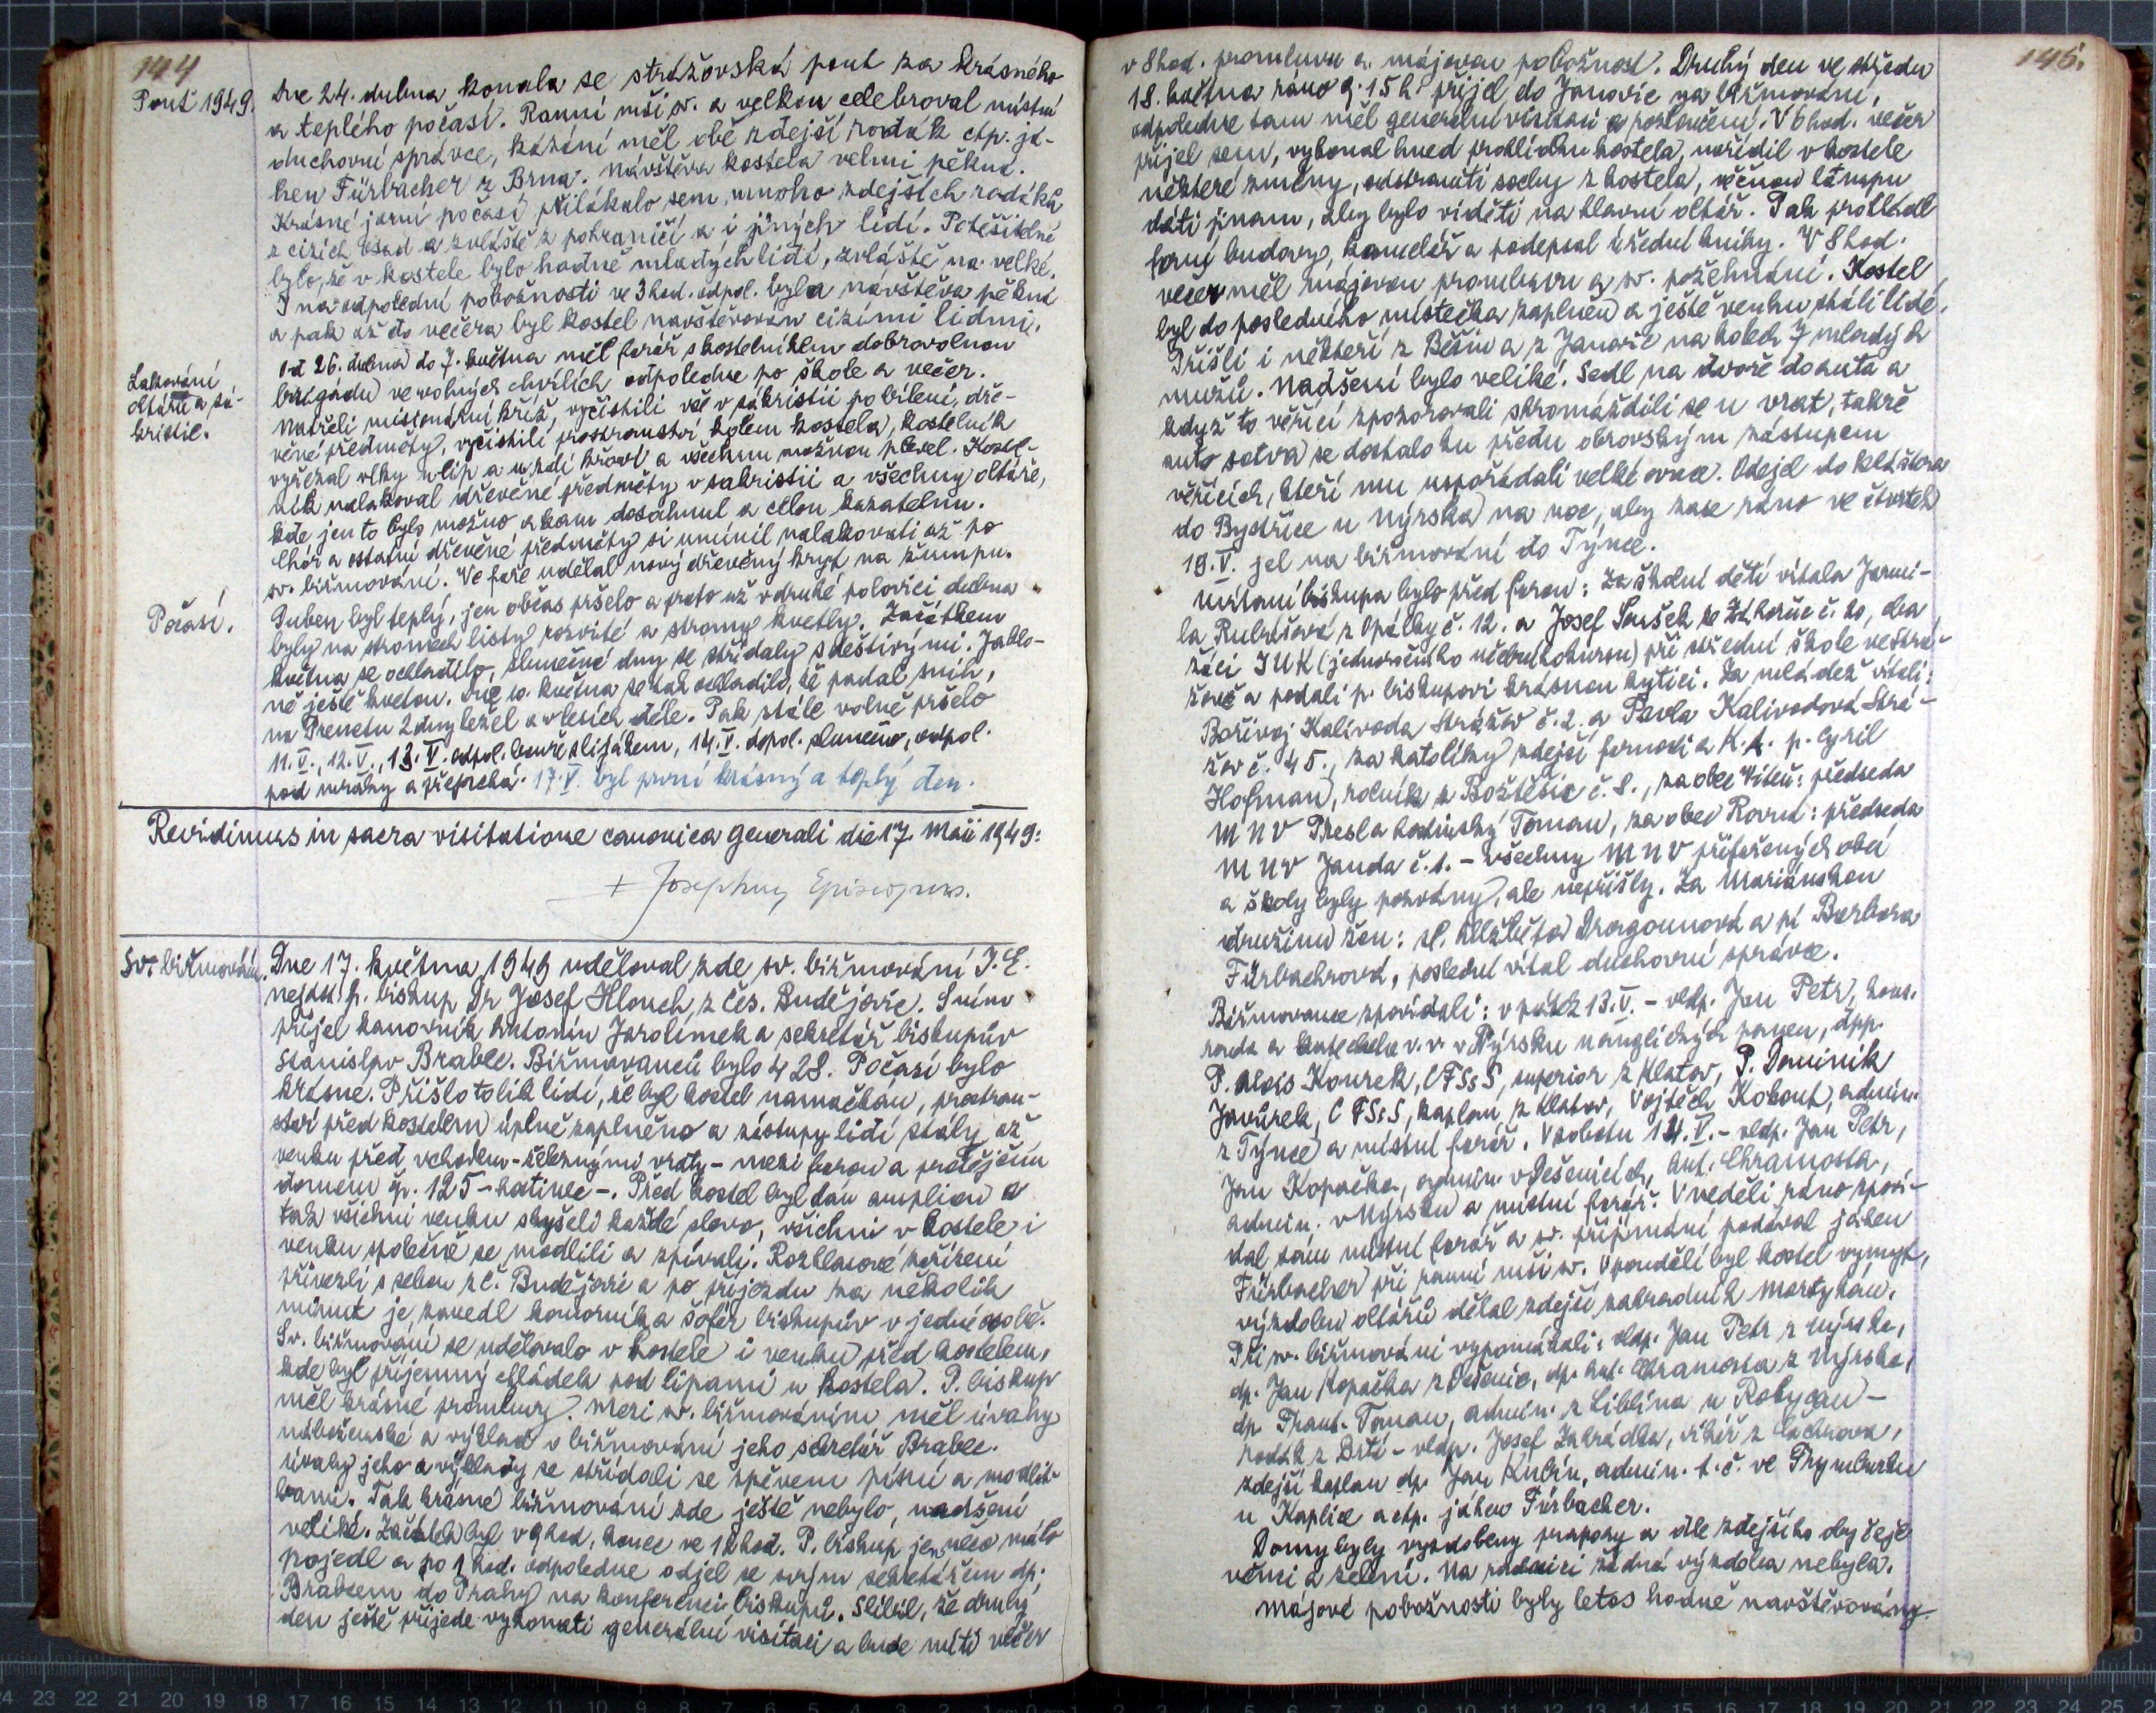 144
Pouť 1949.
Dne 24. dubna konala se strážovská pouť za krásného
a teplého počasí. Ranní mši sv. a velkou celebroval místní
duchovní správce, kázání měl obě zdejší rodák ctp. já-
hen Fürbacher z Brna. Návštěva kostela velmi pěkná.
Krásné jarní počasí přilákalo sem mnoho zdejších rodáků
z cizích osad a zvláště z pohraničí a i jiných lidí. Potěšitelné
bylo, že v kostele bylo hodně mladých lidí, zvláště na velké.
I na odpolední pobožnosti ve 3 hod. odpol. byla návštěva pěkná
a pak až do večera byl kostel navštěvován cizími lidmi.
Lakování
oltářů a sa-
kristie.
Od 26. dubna do 7. května měl farář s kostelníkem dobrovolnou
brigádu ve volných chvílích odpoledne po škole a večer.
Natřeli misionární kříž, vyčistili vše v sakristii po bílení, dře-
věné předměty, vyčistili prostranství kolem kostela, kostelník
vyřezal vlky u lip a u zdi křoví a všechnu možnou plevel. Kostel-
ník nalakoval dřevěné předměty v sakristii a všechny oltáře,
kde jen to bylo možno a kam dosáhnul a celou kazatelnu.
Chór a ostatní dřevěné předměty si umínil nalakovati až po
sv. biřmování. Ve faře udělal nový dřevěný kryt na žumpu.
Počasí.
Duben byl teplý, jen občas pršelo a proto už v druhé polovici dubna
byly na stromech listy rozvité a stromy kvetly. Začátkem
května se ochladilo, slunečné dny se střídaly s deštivými. Jablo-
ně ještě kvetou. Dne 10. května se tak ochladilo, že padal sníh,
na Prenetu 2 dny ležel a v lesích déle. Pak stále volně pršelo
11. V., 12. V., 13. V. odpol. bouře s lijákem, 14. V. dopol. slunečno, odpol.
pod mraky a přeprchá. 17. V. byl první krásný a teplý den.
Revidimus in sacra visitatione canonica generali die 17. Maii 1949:
+ Josephus Episcopus.
Sv. biřmování.
Dne 17. května 1949 uděloval zde sv. biřmování J. E.
nejdp. p. biskup Dr Josef Hlouch z Čes. Budějovic. S ním
přijel kanovník Antonín Jarolímek a sekretář biskupův
Stanislav Brabec. Biřmovanců bylo 428. Počasí bylo
krásné. Přišlo tolik lidí, že byl kostel namačkán, prostran-
ství před kostelem úplně zaplněno a zástupy lidí stály až
venku před vchodem - železnými vraty - mezi farou a protějším
domem čp. 125 - hotince -. Před kostel byl dán amplion a
tak všichni venku slyšeli každé slovo, všichni v kostele i
venku společně se modlili a zpívali. Rozhlasové zařízení
přivezli s sebou z Č. Budějovic a po příjezdu za několik
minut je zavedl komorník a šofér biskupův v jedné osobě.
Sv. biřmování se udělovalo v kostele i venku před kostelem,
kde byl příjemný chládek pod lipami u kostela. P. biskup
měl krásné promluvy. Mezi sv. biřmováním měl úvahy
náboženské a výklad o biřmování jeho sekretář Brabec.
Úvahy jeho a výklady se střídali se zpěvem písní a modlit-
bami. Tak krásné biřmování zde ještě nebylo, nadšení
veliké. Začátek byl v 9 hod., konec ve 12 hod. P. biskup jen něco málo
pojedl a po 1 hod. odpoledne odjel se svým sekretářem dp.
Brabcem do Prahy na konferenci biskupů. Slíbil, že druhý
den ještě přijede vykonati generální visitaci a bude míti večer
145.
v 8 hod. promluvu a májovou pobožnost. Druhý den ve středu
18. května ráno 9.15 h přijel do Janovic na biřmování,
odpoledne tam měl generální visitaci a posvěcení. V 6 hod. večer
přijel sem, vykonal hned prohlídku kostela, nařídil v kostele
některé změny, odstraniti sochy z kostela, věčnou lampu
dáti jinam, aby bylo viděti na hlavní oltář. Pak prohlédl
farní budovy, kancelář a podepsal úřední knihy. V 8 hod.
večer měl májovou promluvu a sv. požehnání. Kostel
byl do posledního místečka zaplněn a ještě venku stáli lidé.
Přišli i někteří z Běšin a z Janovic na kolech 7 mladých
mužů. Nadšení bylo veliké. Sedl na dvoře do auta a
když to věřící zpozorovali shromáždili se u vrat, takže
auto sotva se dostalo ku předu obrovským zástupem
věřících, kteří mu uspořádali velké ovace. Odejel do kláštera
do Bystřice u Nýrska na noc, aby zase ráno ve čtvrtek
19. V. jel na biřmování do Týnce.
Uvítání biskupa bylo před farou: za školní děti vítala Jarmi-
la Rubášová z Opálky č. 12. a Josef Soušek ze Zahorčic č. 20, oba
žáci JUK (jednoročního učebního kursu) při střední škole ve Strá-
žově a podali p. biskupovi krásnou kytici. Za mládež vítali:
Bořivoj Kalivoda Strážov č. 2. a Pavla Kalivodová Strá-
žov č. 45., za katolíky zdejší farnosti a K. A. p. Cyril
Hofman, rolník z Božtěšic č. 8., za obec Viteň: předseda
MNV Toman, za obec Rovná: předseda
MNV Janda č. 1. - Všechny MNV přifařených obcí
a školy byly pozvány, ale nepřišly. Za Mariánskou
družinu žen: sl. Alžběta Dragounová a pí Barbora
Fürbachrová, poslední vítal duchovní správce.
Biřmovance zpovídali: v pátek 13. V. - vldp. Jan Petr, kons.
rada a katecheta v. v. v Nýrsku u anglických panen, dpp.
P. Alois Kourek, CFSsS, superior z Klatov, P. Dominik
Javůrek, CFSsS, kaplan z Klatov, Vojtěch Kohout, admin.
z Týnce a místní farář. V sobotu 14. V. - vldp. Jan Petr,
Jan Kopačka, admin. v Dešenicích, Ant. Chramosta,
admin. v Nýrsku a místní farář. V neděli ráno zpoví-
dal sám místní farář a sv. přijímání podával jáhen
Fürbacher při ranní mši sv. V pondělí byl kostel vymyt,
výzdobu oltářů dělal zdejší zahradník Martykán.
Při sv. biřmování vypomáhali: vldp. Jan Petr z Nýrska,
dp. Jan Kopačka z Dešenic, dp. Ant. Chramosta z Nýrska,
dp. Frant. Toman, admin. z Liblína u Rokycan -
rodák z Brtí - vldp. Josef Zahrádka, vikář z Čachrova,
zdejší kaplan dp. Jan Kubín, admin. t. č. ve Frymburku
u Kaplice a ctp. jáhen Fürbacher.
Domy byly vyzdobeny prapory a dle zdejšího obyčeje
věnci a zelení. Na radnici žádná výzdoba nebyla.
Májové pobožnosti byly letos hodně navštěvovány